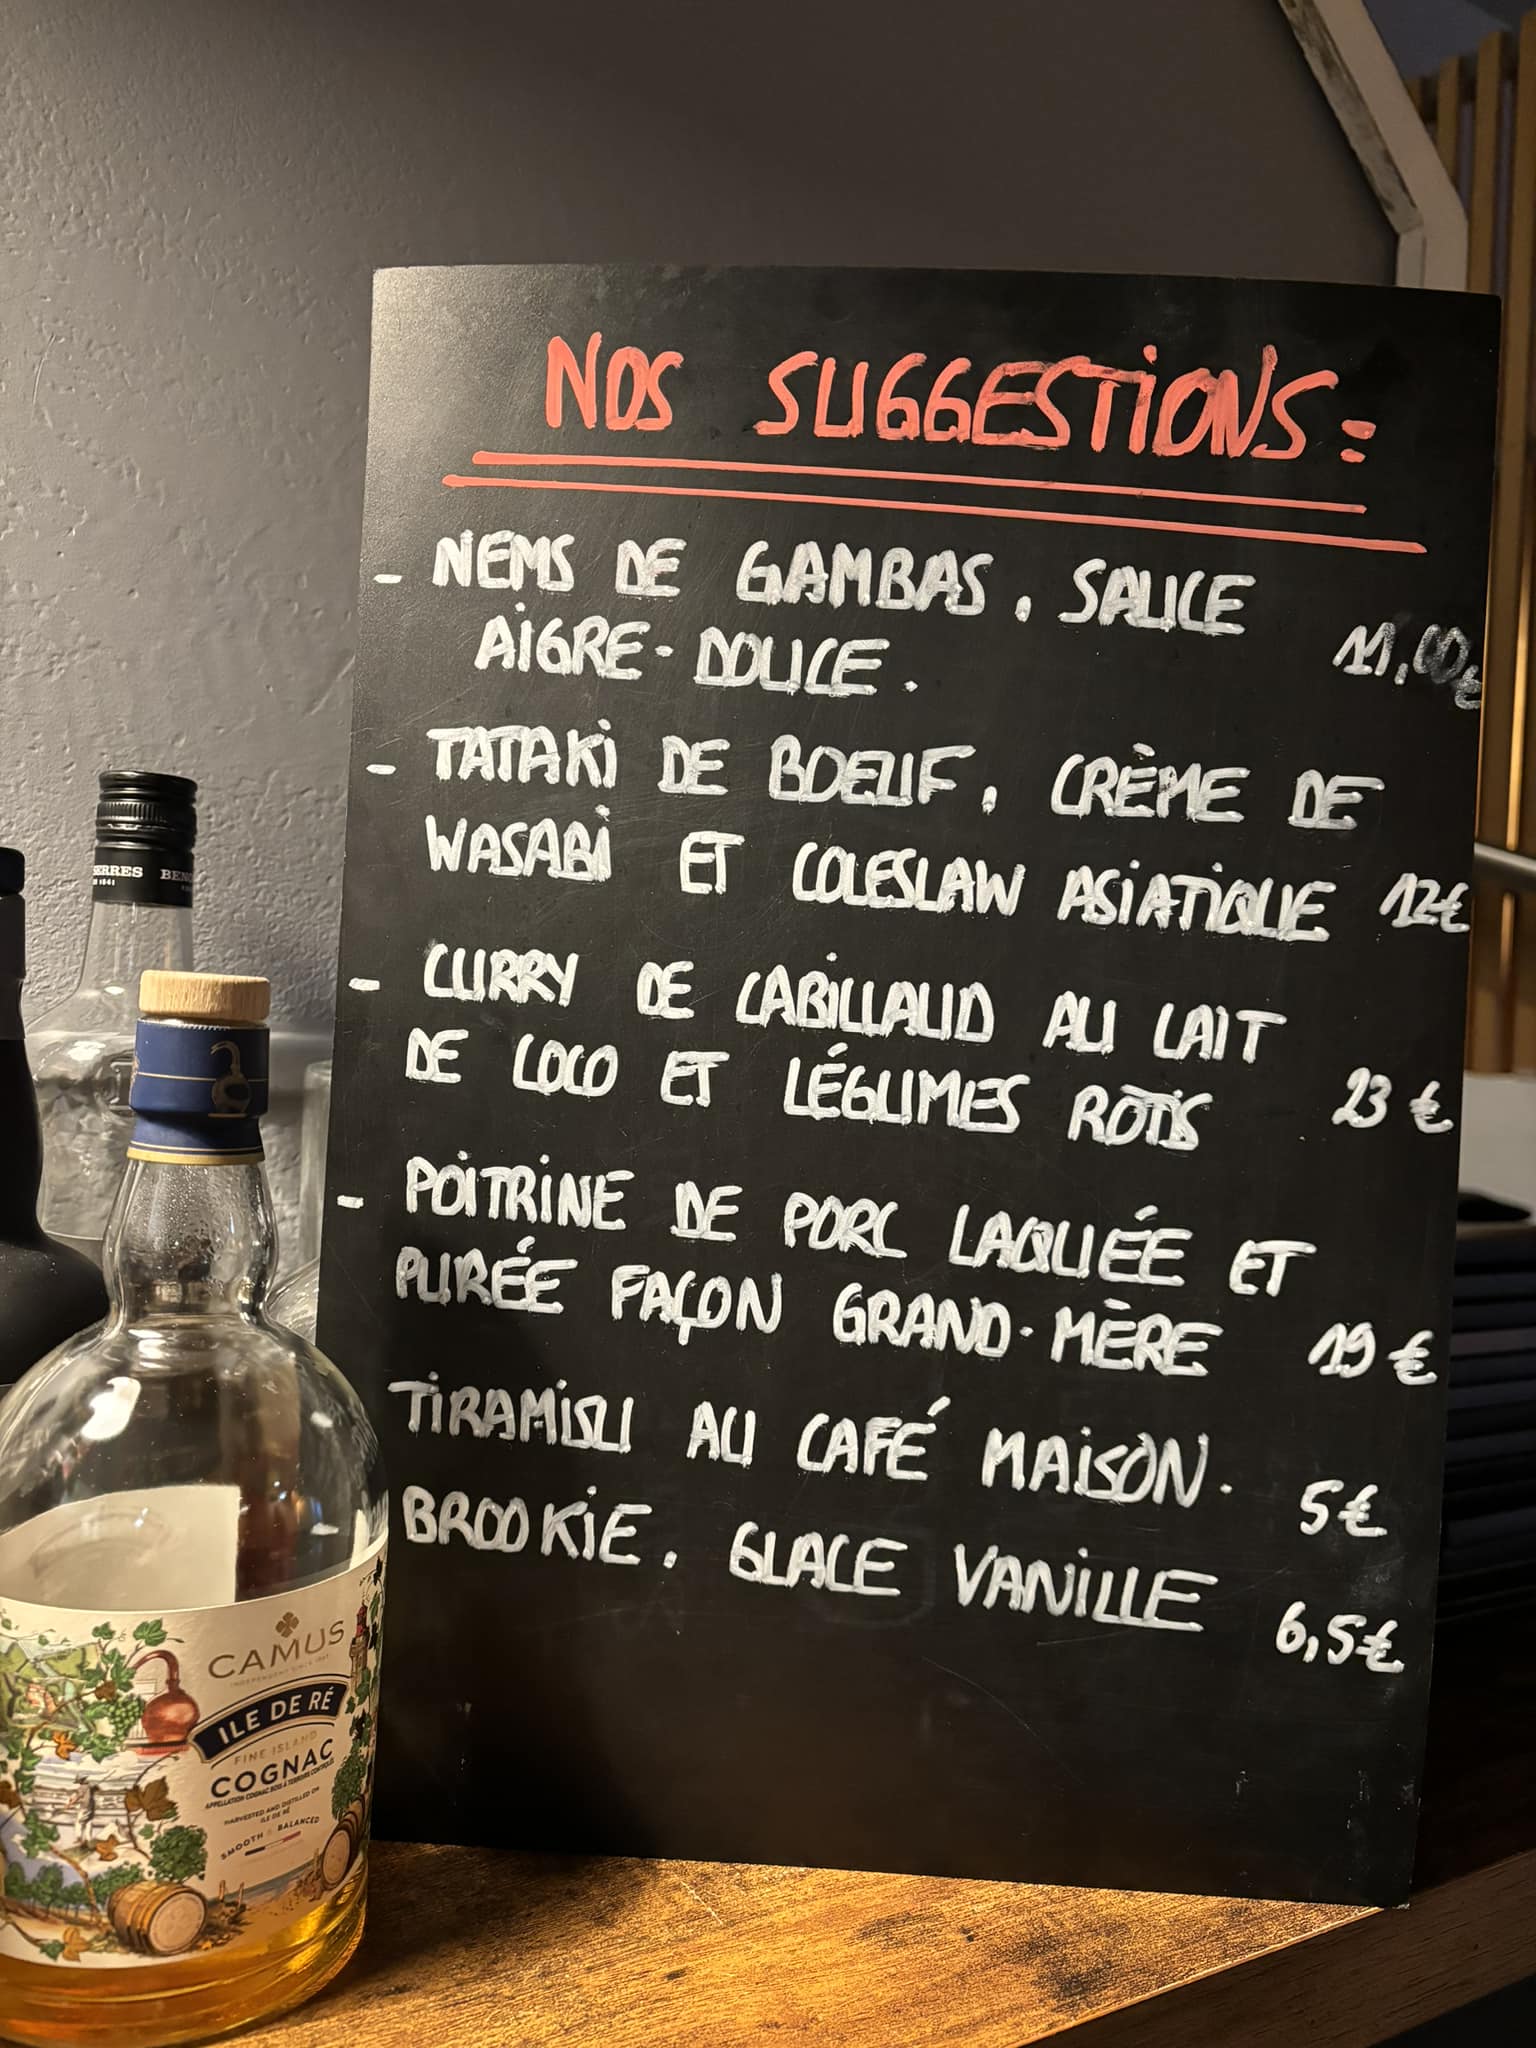 NOS SUGGESTIONS:
- NEMS DE GAMBAS, SAUCE
AIGRE-DOUCE. 11,00€
- TATAKI DE BOEUF, CRÈME DE
WASABI ET COLESLAW ASIATIQUE 12€
- CURRY DE CABILLAUD AU LAIT
DE COCO ET LÉGUMES RÔTIS 23 €
- POITRINE DE PORC LAQUÉE ET
PURÉE FAÇON GRAND-MÈRE 19 €
TIRAMISU AU CAFÉ MAISON. 5€
BROOKIE, GLACE VANILLE 6,5€
CAMUS
INDEPENDENT SINCE 1863
ILE DE RÉ
FINE ISLAND
COGNAC
APPELLATION COGNAC BOIS À TERROIRS CONTRÔLÉE
HARVESTED AND DISTILLED ON
ILE DE RÉ
SMOOTH & BALANCED